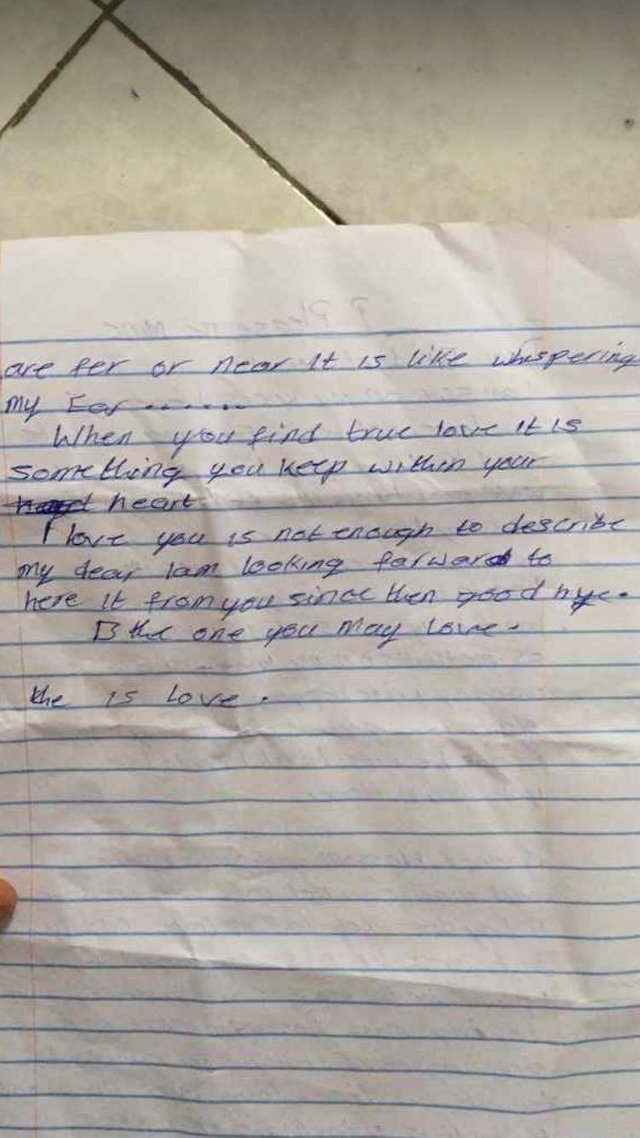 are fer or near it is like whispering
my Ear.......
When you find true love it is
something you keep within your
heart
I love you is not enough to describe
my dear Iam looking forward to
here it from you since then good
B the one you may love.
the is love.